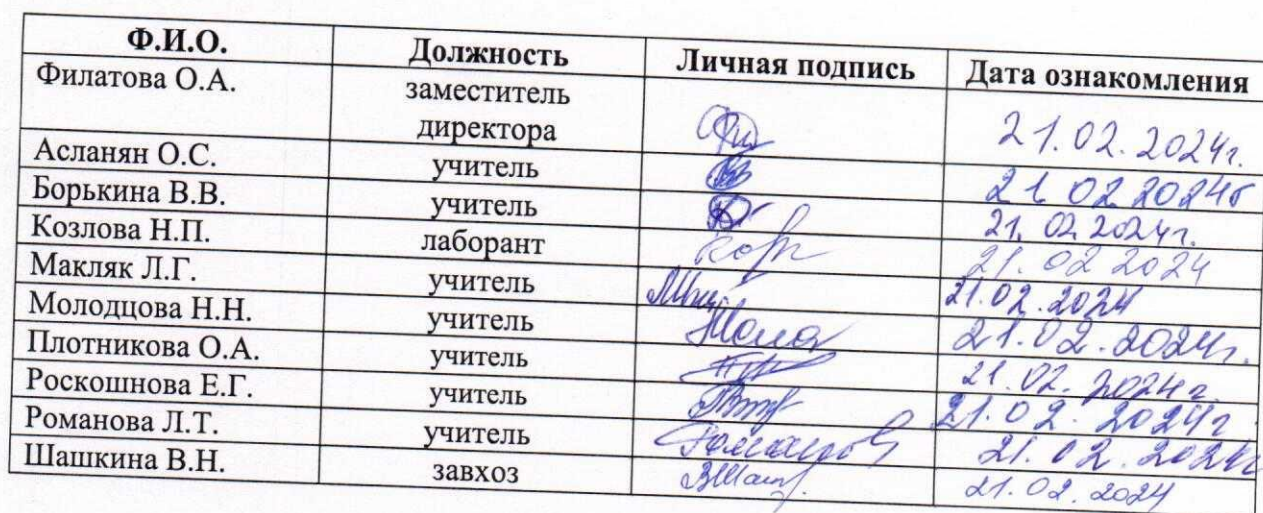 Ф.И.О. Должность Личная подпись Дата ознакомления
Филатова О.А. заместитель
директора 21.02.2024г.
Асланян О.С. учитель 21 02 2024г
Борькина В.В. учитель 21. 02 2024г.
Козлова Н.П. лаборант 21.02 2024
Макляк Л.Г. учитель 21.02.2024
Молодцова Н.Н. учитель 21.02.2024г.
Плотникова О.А. учитель 21.02.2024г
Роскошнова Е.Г. учитель 21.02.2024г
Романова Л.Т. учитель 21.02.2024г
Шашкина В.Н. завхоз 21.02.2024